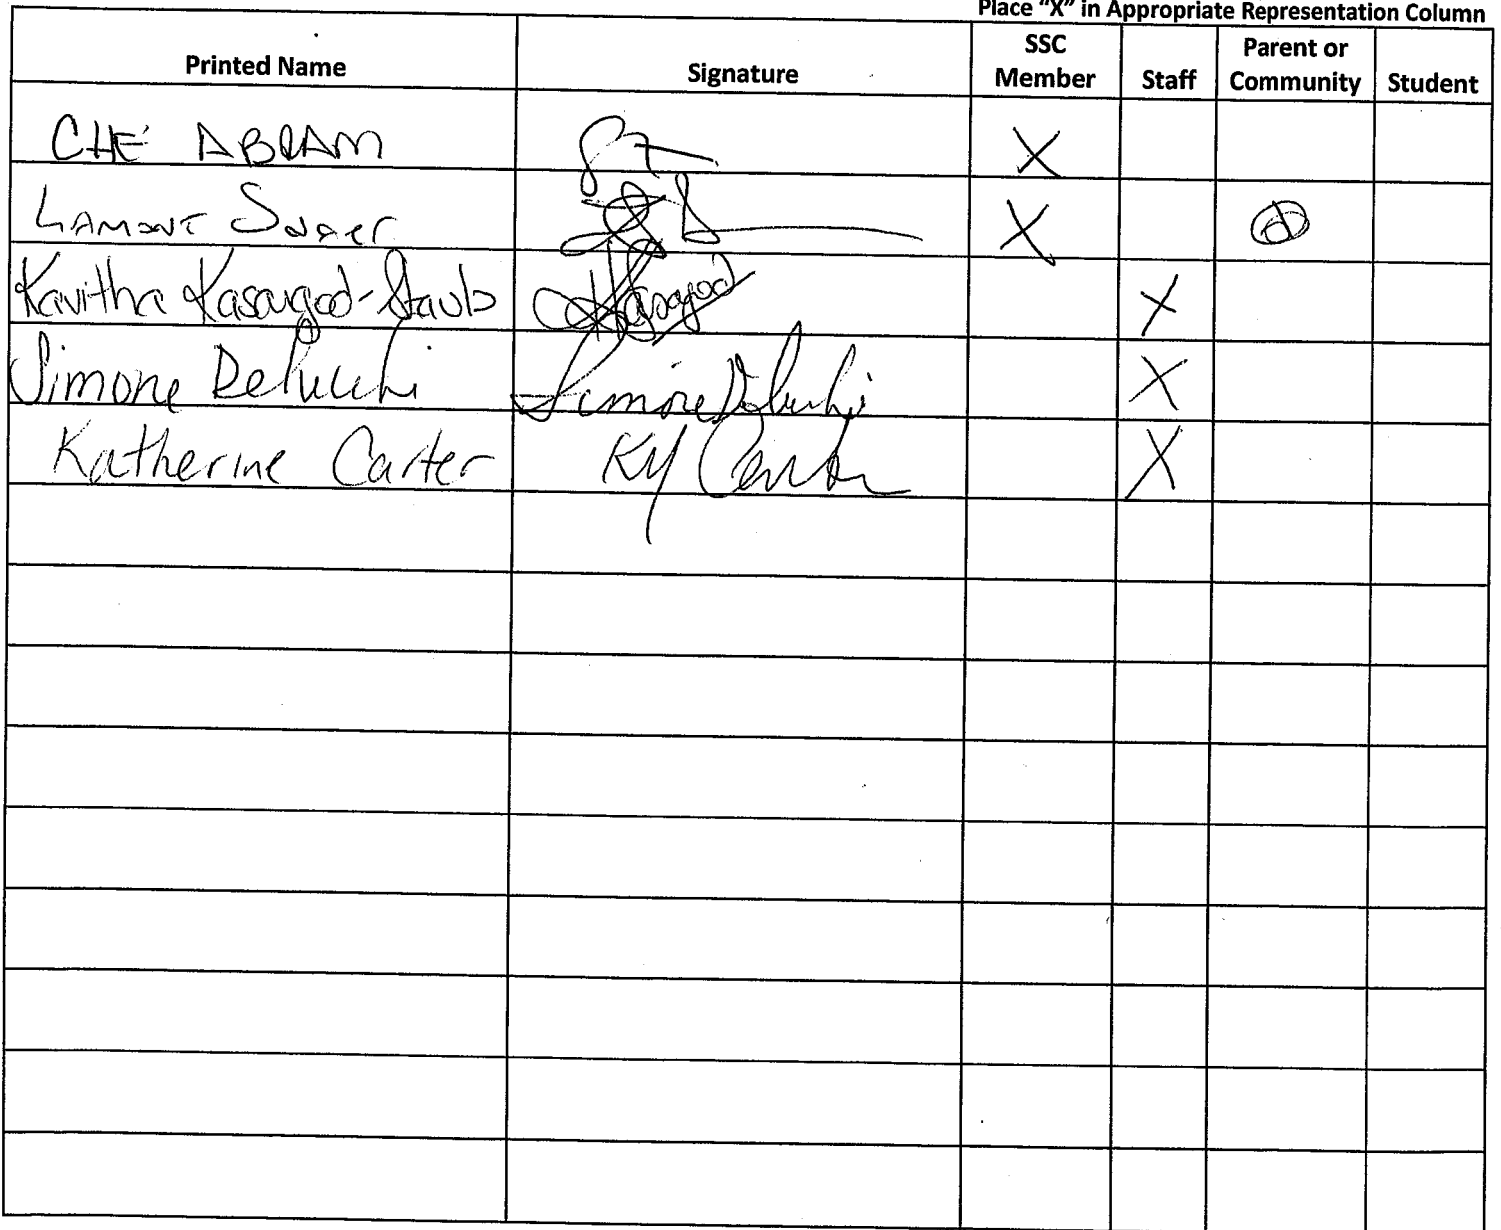 Place "X" in Appropriate Representation Column
Printed Name Signature SSC Member Staff Parent or Community Student
CHÉ ABRAM X
LAMONT X
Kavitha Kasargod-Staub Kasargod X
Simone Delucchi Simone Delucchi X
Katherine Carter Carter X